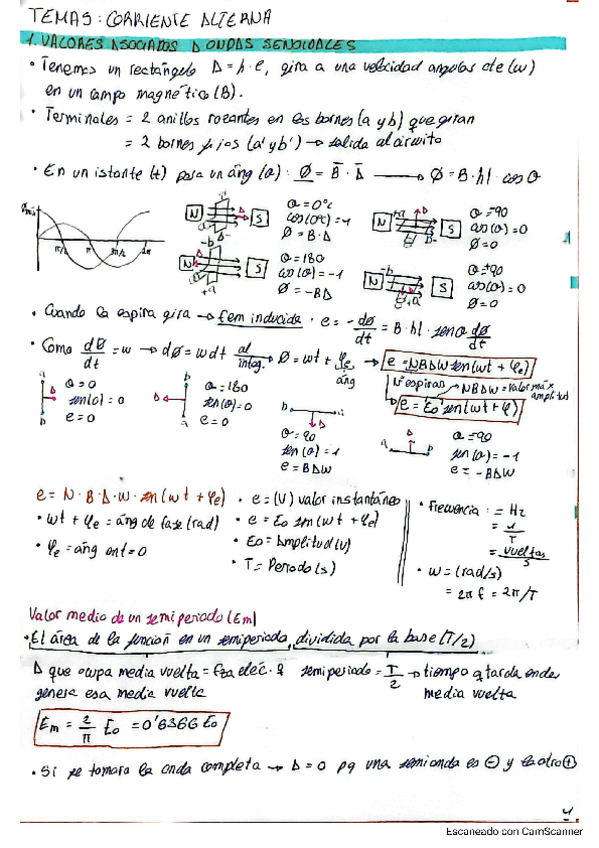 TEMA5: CORRIENTE ALTERNA
1. VALORES ASOCIADOS A ONDAS SENOIDALES
• Tenemos un rectángulo A = h · l, gira a una velocidad angular de (w)
en un campo magnético (B).
• Terminales = 2 anillos rozantes en los bornes (a y b) que giran
= 2 bornes fijos (a' y b') → salida al circuito
• En un istante (t) para un áng (θ): Ø = B̄ · Ā → Ø = B · h l · cos θ
π/2 π 3π/2 2π
N S
θ = 0°
cos(0°) = 1
Ø = B · A
N S
θ = 90
cos(θ) = 0
Ø = 0
N S
θ = 180
cos(θ) = -1
Ø = -BA
N S
cos(θ) = 0
Ø = 0
• Cuando la espira gira → fem inducida · e = -dØ/dt = B · hl · sen θ dØ/dt
• Como dØ/dt = w → dØ = w dt al integ. → Ø = wt + φe áng → e = NBAW sen(wt + φe)
Nº espiras NBAW = valor máx amplitud
e = Eo sen(wt + φ)
θ = 0
sen(θ) = 0
e = 0
θ = 180
sen(θ) = 0
e = 0
θ = 90
sen(θ) = 1
e = BAW
θ = 90
sen(θ) = -1
e = -BAW
e = N · B · A · W · sen(wt + φe)
• wt + φe = áng de fase (rad)
• φe = áng en t = 0
• e = (V) valor instantáneo
• e = Eo sen(wt + φe)
• Eo = Amplitud (V)
• T = Periodo (s)
• Frecuencia: = Hz
= 1/T
= vueltas/s
• W = (rad/s)
= 2π f = 2π/T
Valor medio de un semiperiodo (Em)
• El área de la función en un semiperiodo, dividida por la base (T/2)
A que ocupa media vuelta = fza eléc. q semiperiodo = T/2 → tiempo q tarda en dar
genera esa media vuelta media vuelta
Em = 2/π Eo = 0'6366 Eo
• Si se tomara la onda completa → A = 0 pq una semionda es ⊖ y la otra ⊕
Escaneado con CamScanner